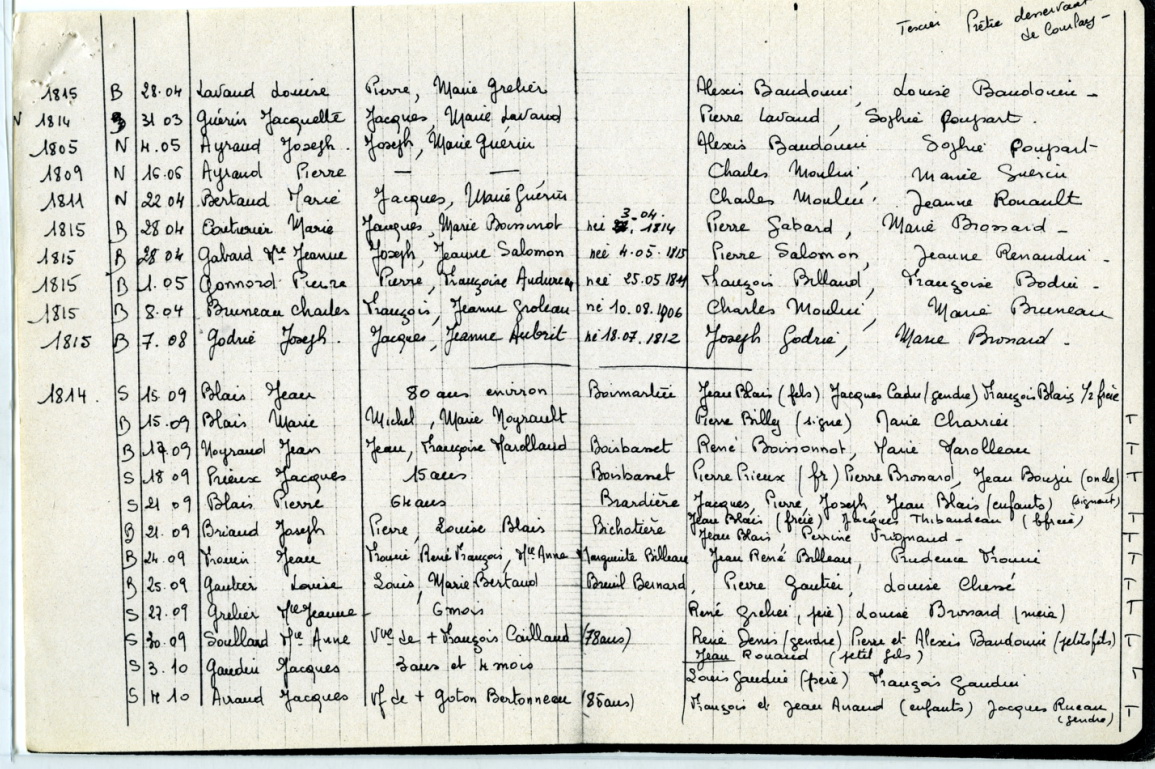 Texier Prêtre desservant
de Courlay -
1815 B 28.04 Lavaud Louise Pierre, Marie Grelier Alexis Baudouin, Louise Baudouin -
N 1814 B 31 03 Guérin Jacquette Jacques, Marie Lavaud Pierre Lavaud, Sophie Poupart.
1805 N 4.05 Ayraud Joseph. Joseph, Marie Guérin Alexis Baudouin Sophie Poupart
1809 N 16.06 Ayraud Pierre — — Charles Moulin, Marie Guérin
1811 N 22 04 Bertaud Marie Jacques, Marie Guérin Charles Moulin, Jeanne Rouault
1815 B 28 04 Couturier Marie Jacques, Marie Boissinot née 3-04. 1814 Pierre Gabard, Marie Brossard -
1815 B 28 04 Gabard Mie Jeanne Joseph, Jeanne Salomon née 4.05.1815 Pierre Salomon, Jeanne Renaudin -
1815 B 1.05 Gonnord Pierre Pierre, Françoise Audureau né 25.05 1811 François Billaud, Françoise Bodin -
1815 B 8.04 Bruneau Charles François, Jeanne Groleau né 10.08.1906 Charles Moulin, Marie Bruneau
1815 B 7.08 Godrie Joseph. Jacques, Jeanne Aubrit né 18.07.1812 Joseph Godrie, Marie Brossard -
1814. S 15 09 Blais Jean 80 ans environ Boimartin Jean Blais (fils) Jacques Cadu (gendre) François Blais 1/2 frère
B 15.09 Blais Marie Michel, Marie Noyrault Pierre Billy (signe) Marie Charrier T
B 17.09 Noyraud Jean Jean, Françoise Marolleau Boisbanet René Boissonnot, Marie Marolleau T
S 18 09 Prieux Jacques 15 ans Boisbanet Pierre Prieux (fr) Pierre Brossard, Jean Bouju (oncle) T
S 21 09 Blais Pierre 64 ans Brardière Jacques, Pierre, Joseph Jean Blais (enfants) (signant)
Jean Blais (frère) Jacques Thibaudeau (bfrère) T
B 21.09 Briaud Joseph Pierre, Louise Blais Bichotière Jean Blais Perrine Vrignaud - T
B 24.09 Frouin Jean Frouin René François, Mie Anne Marguerite Billeau Jean René Billeau, Prudence Frouin T
B 25.09 Gautier Louise Louis, Marie Bertaud Breuil Bernard, Pierre Gautier, Louise Chessé T
S 27.09 Grelier Mie Jeanne 6 mois René Grelier, père) Louise Brossard (mère) T
S 30.09 Soullard Mie Anne Vve de + François Caillaud (78 ans) René Denis (gendre) Pierre et Alexis Baudouin (petits fils) T
Jean Rouaud (petit fils)
S 3.10 Gaudin Jacques 3 ans et 4 mois Louis Gaudin (père) François Gaudin T
S 4 10 Airaud Jacques Vf de + Goton Bertonneau (85 ans) François et Jean Airaud (enfants) Jacques Rueau (gendre) T